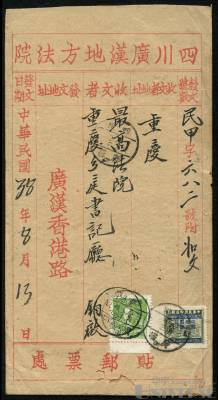 四川廣漢地方法院
發文號數
民甲字六八二號附
收文者地址
重慶
收文者
最高法院
重慶分庭書記廳
發文地址
廣漢香港路
發文日期
中華民國38年8月13日
貼郵票處